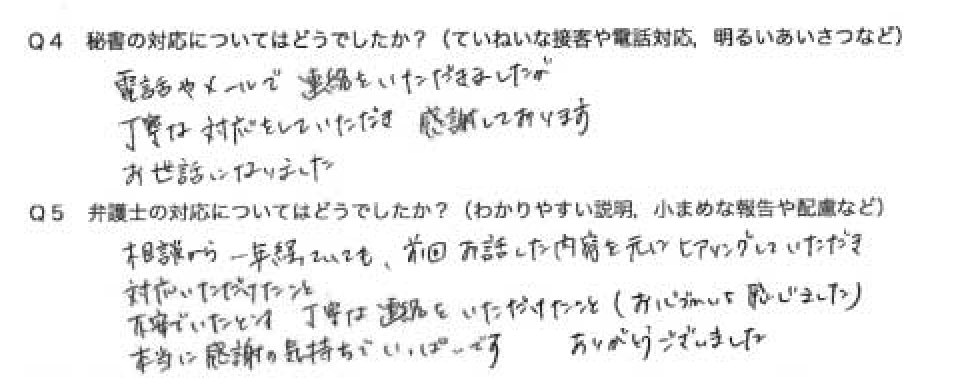 Q4 秘書の対応についてはどうでしたか？（ていねいな接客や電話対応，明るいあいさつなど）
電話やメールで 連絡をいただきましたが
丁寧な 対応をしていただき 感謝しております
お世話になりました
Q5 弁護士の対応についてはどうでしたか？（わかりやすい説明，小まめな報告や配慮など）
相談から 一年経っていても、前回 お話した内容を元に ヒアリングしていただき
対応いただけたこと
不安でいたとき 丁寧な 連絡を いただけたこと（お心づかいを 感じました）
本当に 感謝の気持ちでいっぱいです ありがとうございました